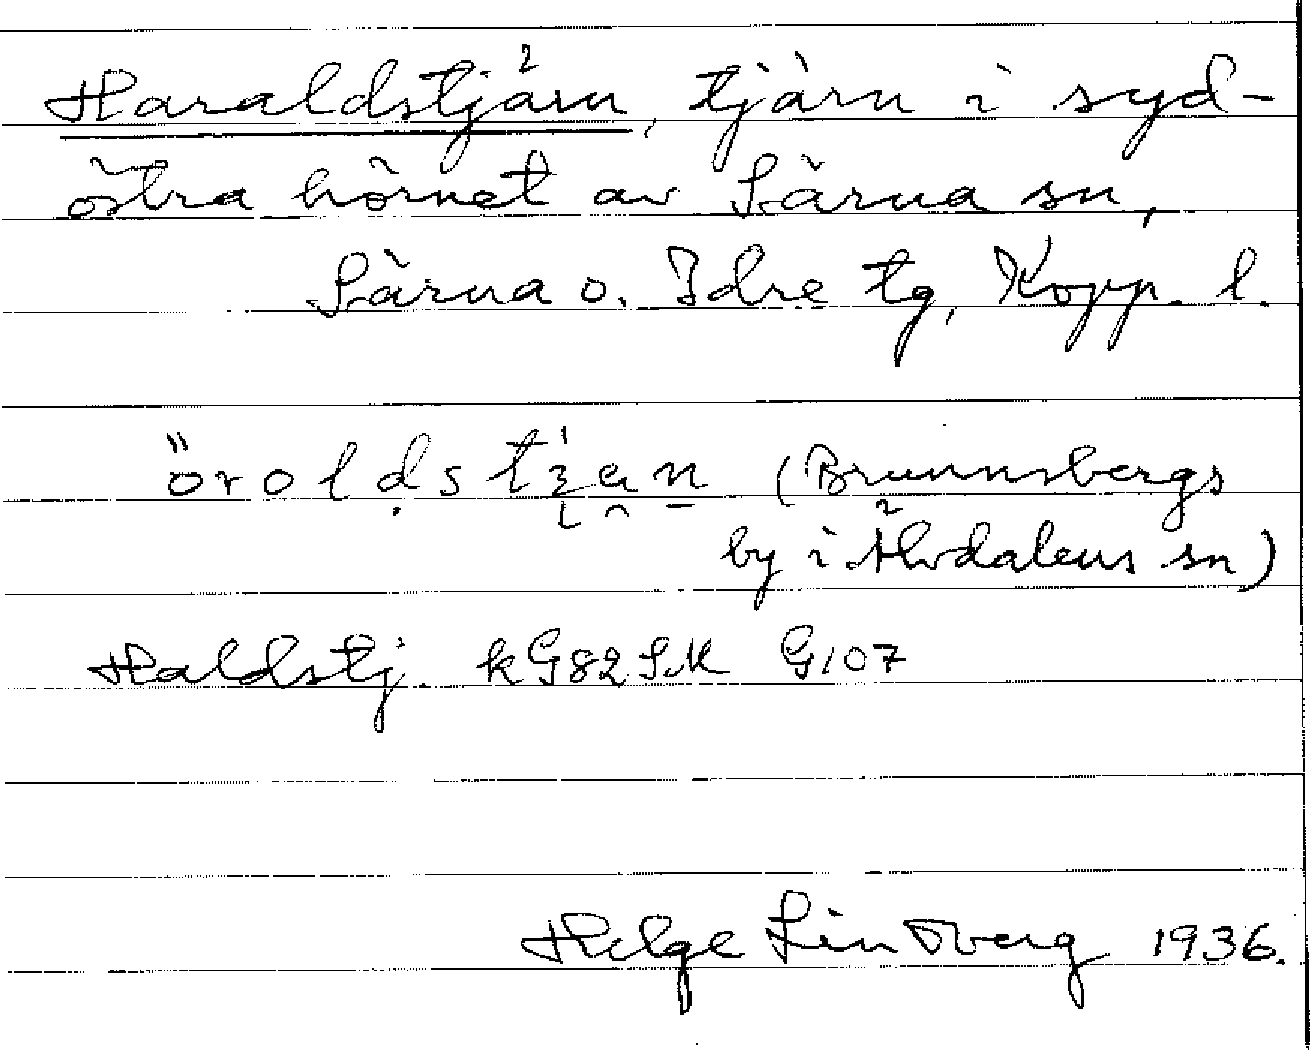 Haraldstjärn, tjärn i syd-
östra hörnet av Särna sn,
Särna o. Idre tg, Kopp. l.
öroldstjan (Brunnsbergs
by i Älvdalens sn)
Haldstj. kG82SM G107
Helge Lindberg 1936.